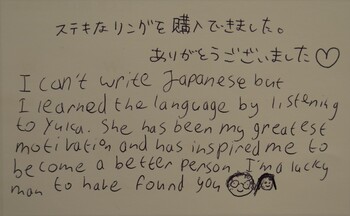 ステキなリングを購入できました。
ありがとうございました♡
I can't write Japanese but
I learned the language by listening
to Yuka. She has been my greatest
motivation and has inspired me to
become a better person. I'm a lucky
man to have found you